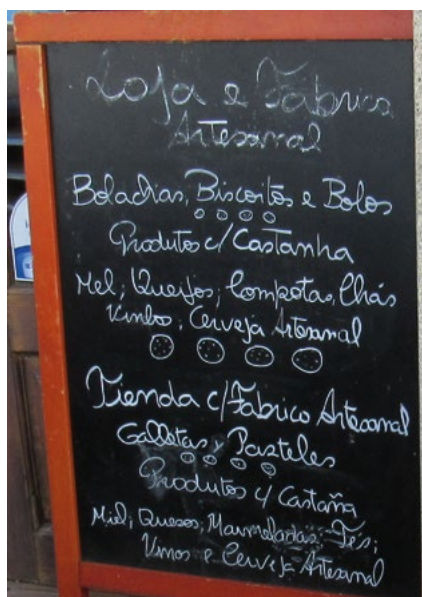 Loja e Fabrico
Artesanal
Bolachas, Biscoitos e Bolos
Produtos c/ Castanha
Mel; Queijos; Compotas, Chás
Vinho; Cerveja Artesanal
Tienda c/ Fabrico Artesanal
Galletas y Pasteles
Produtos c/ Castaña
Miel; Quesos; Marmeladas; Tés;
Vinos e Cerveja Artesanal